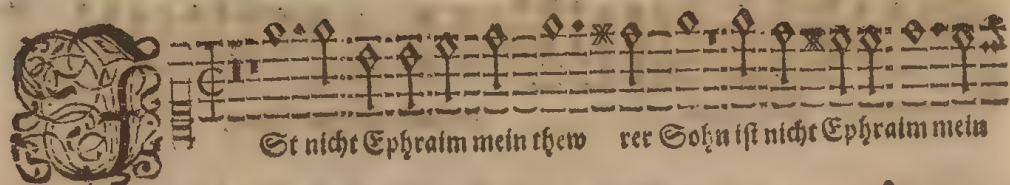 ISt nicht Ephraim mein thew rer Sohn ist nicht Ephraim mein